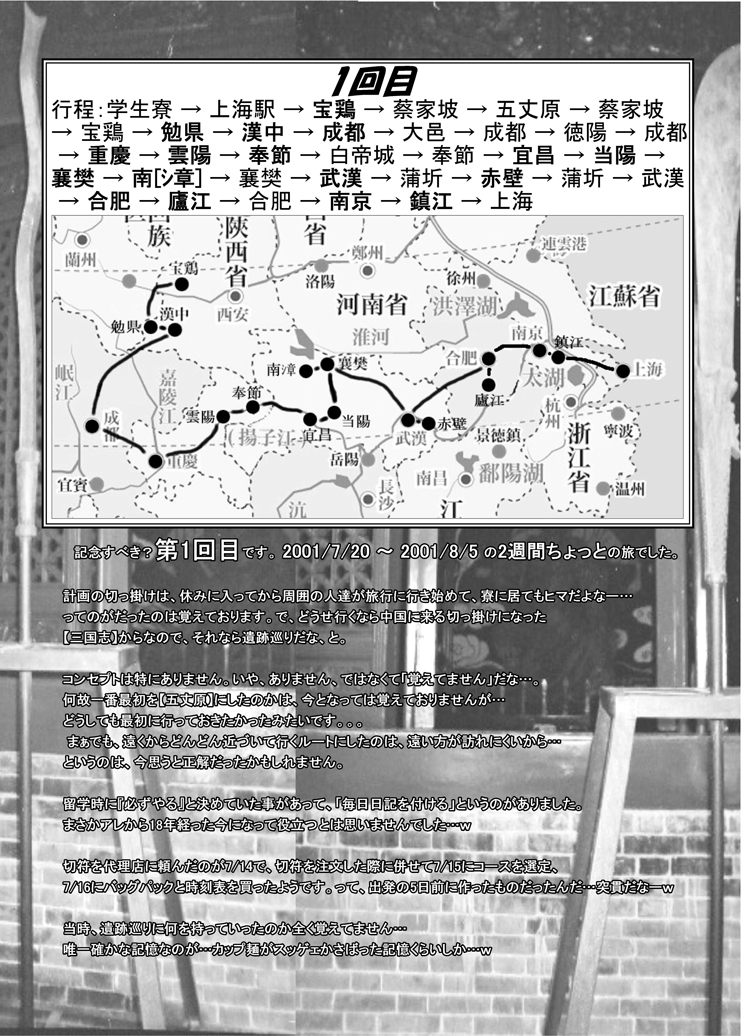 1回目
行程：学生寮 → 上海駅 → 宝鶏 → 蔡家坡 → 五丈原 → 蔡家坡
→ 宝鶏 → 勉県 → 漢中 → 成都 → 大邑 → 成都 → 徳陽 → 成都
→ 重慶 → 雲陽 → 奉節 → 白帝城 → 奉節 → 宜昌 → 当陽 →
襄樊 → 南[ｼ章] → 襄樊 → 武漢 → 蒲圻 → 赤壁 → 蒲圻 → 武漢
→ 合肥 → 廬江 → 合肥 → 南京 → 鎮江 → 上海
族
陝西省
省
連雲港
蘭州
鄭州
宝鶏
洛陽
徐州
江蘇省
西安
河南省
洪澤湖
漢中
勉県
淮河
南京
鎮江
合肥
襄樊
南漳
上海
岷江
嘉陵江
太湖
廬江
奉節
杭州
成都
雲陽
当陽
宜昌
(揚子江)
武漢
赤壁
景徳鎮
浙江省
寧波
重慶
岳陽
鄱陽湖
南昌
宜賓
長沙
温州
江
記念すべき？第1回目です。 2001/7/20 ～ 2001/8/5 の2週間ちょっとの旅でした。
計画の切っ掛けは、休みに入ってから周囲の人達が旅行に行き始めて、寮に居てもヒマだよなー…
ってのがだったのは覚えております。で、どうせ行くなら中国に来る切っ掛けになった
【三国志】からなので、それなら遺跡巡りだな、と。
コンセプトは特にありません。いや、ありません、ではなくて「覚えてません」だな…。
何故一番最初を【五丈原】にしたのかは、今となっては覚えておりませんが…
どうしても最初に行っておきたかったみたいです。。。
まぁでも、遠くからどんどん近づいて行くルートにしたのは、遠い方が訪れにくいから…
というのは、今思うと正解だったかもしれません。
留学時に『必ずやる』と決めていた事があって、「毎日日記を付ける」というのがありました。
まさかアレから18年経った今になって役立つとは思いませんでした…w
切符を代理店に頼んだのが7/14で、切符を注文した際に併せて7/15にコースを選定、
7/16にバッグパックと時刻表を買ったようです。って、出発の5日前に作ったものだったんだ…突貫だなーw
当時、遺跡巡りに何を持っていったのか全く覚えてません…
唯一確かな記憶なのが…カップ麺がスッゲェかさばった記憶くらいしか…w